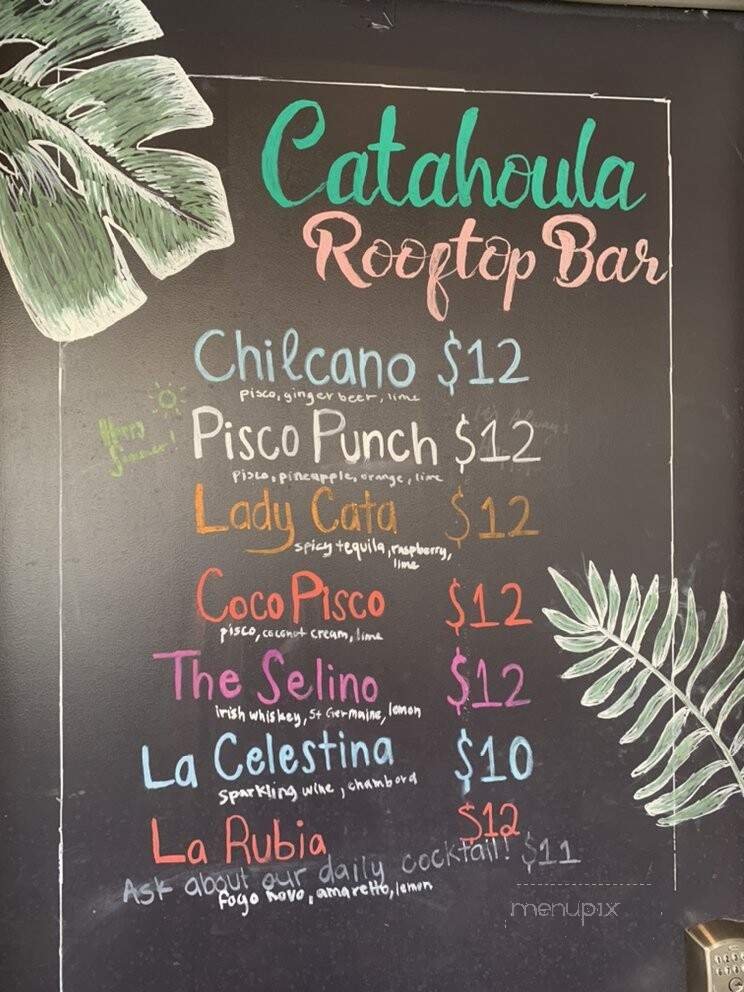 Catahoula
Rooftop Bar
Chilcano $12
pisco, ginger beer, lime
Happy
Summer!
Pisco Punch $12
pisco, pineapple, orange, lime
Lady Cata $12
spicy tequila, raspberry,
lime
Coco Pisco $12
pisco, coconut cream, lime
The Selino $12
irish whiskey, St Germaine, lemon
La Celestina $10
sparkling wine, chambord
La Rubia $12
Ask about our daily cocktail! $11
fogo novo, amaretto, lemon
menupix